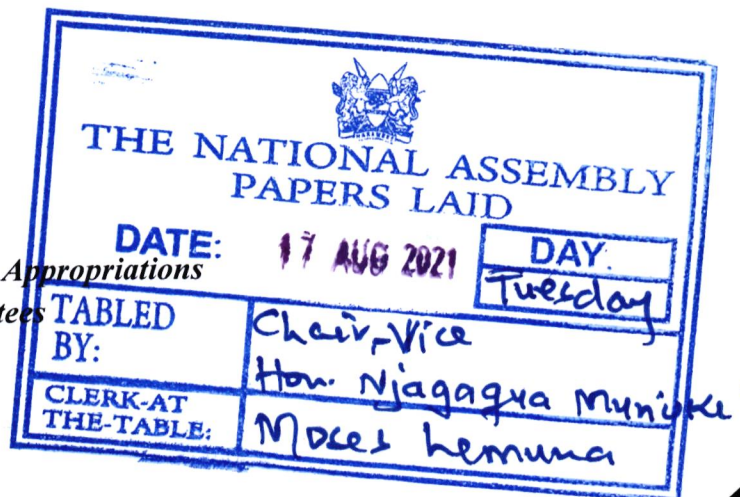 THE NATIONAL ASSEMBLY
PAPERS LAID
DATE: 17 AUG 2021
DAY:
Tuesday
Appropriations
tees
TABLED
BY:
Chair, Vice
Hon. Njagagua
CLERK-AT
THE-TABLE:
Moses Lemuna